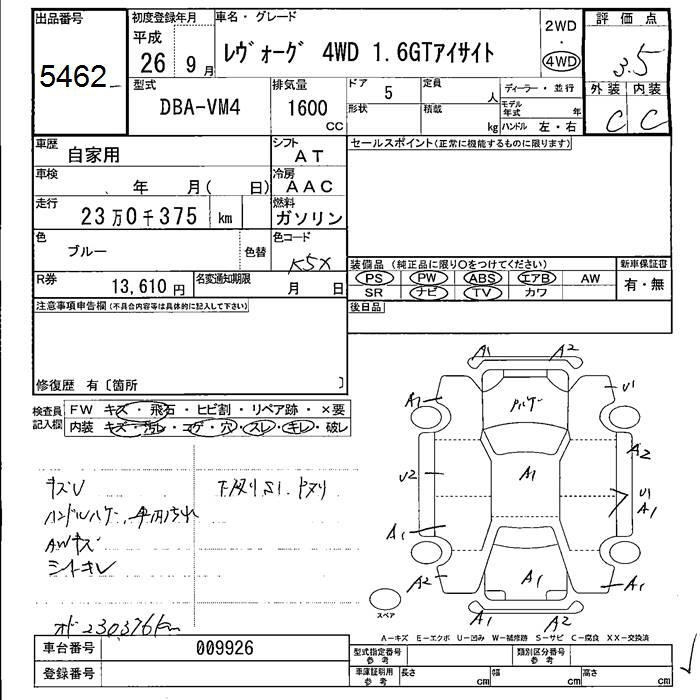 出品番号
5462
初度登録年月
平成
26 9月
車名・グレード
レヴォーグ 4WD 1.6GTアイサイト
2WD
・
4WD
評価点
3.5
外装 内装
C C
型式
DBA-VM4
排気量
1600
CC
ドア 5
形状
定員 人
積載 kg
ディーラー・並行
モデル年式 年
ハンドル 左・右
車歴
自家用
シフト
AT
セールスポイント(正常に機能するものに限ります)
車検
、 年 月( 日)
冷房
AAC
走行
23万0千375 km
燃料
ガソリン
色
ブルー
色替
色コード
K5X
R券
13,610円
名変通知期限
月 日
装備品 (純正品に限り○をつけてください)
PS PW ABS エアB AW
SR ナビ TV カワ
新車保証書
有・無
後日品
注意事項申告欄(不具合内容等は具体的に記入して下さい)
修復歴 有〔箇所 〕
検査員記入欄
FW キズ・飛石・ヒビ割・リペア跡・×要
内装 キズ・汚れ・コゲ・穴・スレ・キレ・破レ
キズU
下回りS1.
AWキズ
シートキレ
A1 A2
A1
U1
A1
U2
A2
U1
A1
A1
A2
A1
A1
A1 A2
スペア
A-キズ E-エクボ U-凹み W-補修跡 S-サビ C-腐食 XX-交換済
車台番号
009926
登録番号
型式指定番号
参考
類別区分番号
参考
車庫証明用
参考
長さ cm
幅 cm
高さ cm